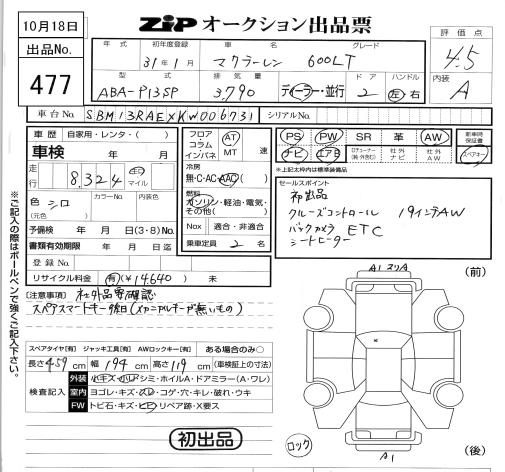 10月18日
ZIP オークション出品票
出品No.
477
年式 初年度登録 車名 グレード
31年1月 マクラーレン 600LT
型式 排気量 ドア ハンドル
ABA-P13SP 3,790 ディーラー・並行 2 左・右
評価点
4.5
内装
A
車台No. SBM13RAEXKW006731 シリアルNo.
車歴 自家用・レンタ・( )
車検 年 月
走行 8,324 km マイル
色 シロ カラーNo. 内装色
(元色)
予備検 年 月 日(3・8)
書類有効期限 年 月 日迄
登録No.
リサイクル料金 有(¥14,640) 未
フロア コラム インパネ AT MT 速
冷房
無・C・AC・AAC
燃料
ガソリン・軽油・電気・その他( )
Nox 適合・非適合
乗車定員 2 名
PS PW SR 革 AW 新車時保証書
ナビ エアB 社外ナビ 社外AW スペアキー
※上記太枠内は標準装備品
セールスポイント
初出品
クルーズコントロール 19インチAW
バックカメラ ETC
シートヒーター
【注意事項】 社外品要確認
スペアスマートキー
スペアタイヤ[有] ジャッキ工具[有] AWロックキー[有] ある場合のみ○
長さ459cm 幅194cm 高さ119cm (車検証上の寸法)
検査記入
外装 小キズ・小凹 シミ・ホイルA・ドアミラー(A・ワレ)
室内 ヨゴレ・キズ・スレ・コゲ・穴・キレ・破れ・ウキ
FW トビ石・キズ・ヒビ・リペア跡・X要ス
初出品
※ご記入の際はボールペンで強くご記入下さい。
(前)
ロック
A1
(後)